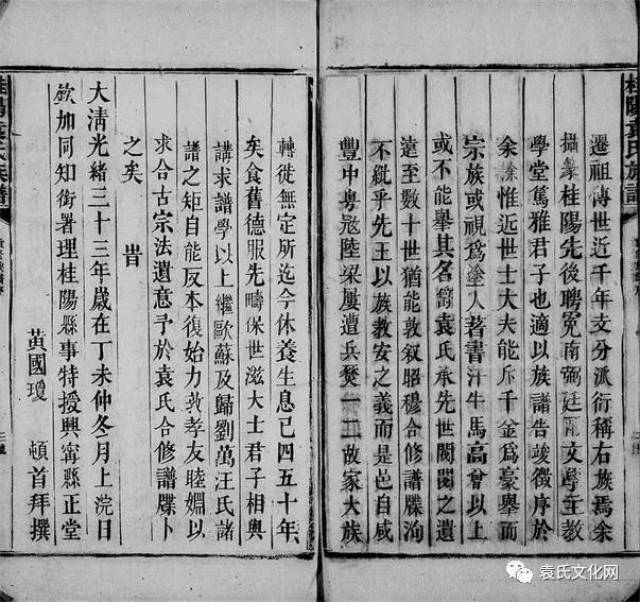 桂陽袁氏族譜
遷祖傳世近千年支分派衍稱右族焉余
攝篆桂陽先後聘冕南弼廷兩文學主教
學堂篤雅君子也適以族譜告竣徵序於
余惟近世士大夫能斥千金為豪舉而
宗族或視為塗人著書汗牛馬高曾以上
或不能舉其名諱袁氏承先世閥閱之遺
遠至數十世猶能敦敘昭穆合修譜牒洵
不紕乎先王以族教安之義而是邑自咸
豐中粵冦陸梁屢遭兵燹一二故家大族
轉徙無定所迄今休養生息已四五十年
矣食舊德服先疇保世滋大士君子相與
講求譜學以上繼歐蘇及歸劉萬汪氏諸
譜之矩自能反本復始力敦孝友睦婣以
求合古宗法遺意予於袁氏合修譜牒卜
之矣
旹
大清光緒三十三年歲在丁未仲冬月上浣日
欽加同知銜署理桂陽縣事特授興寧縣正堂
黃國瓊 頓首拜撰
桂陽袁氏族譜
袁氏文化网